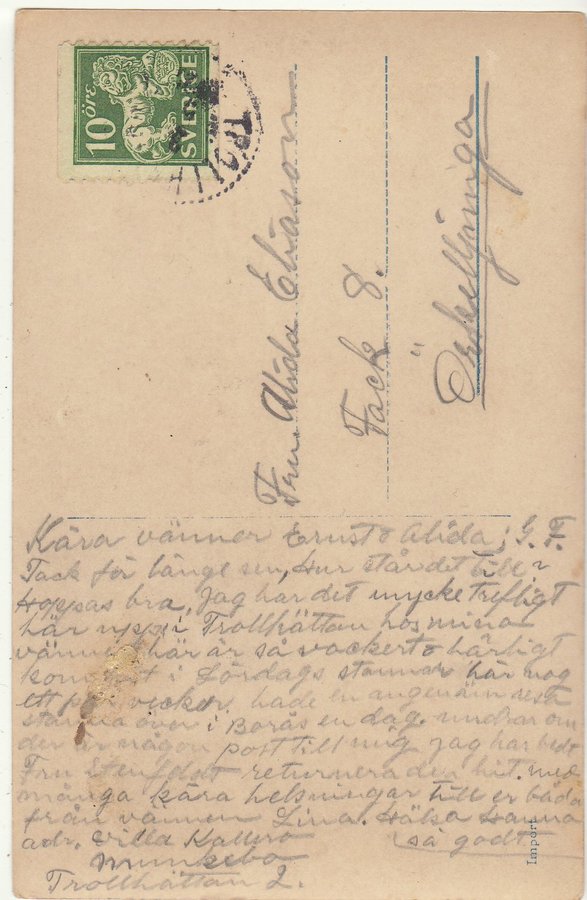 10 öre
SVERIGE
TROLLH
Fru Alida Eliason
Fack 8.
Örkelljunga
Kära vänner Ernst o Alida; G. F.
Tack för länge sen, Hur står det till?
Hoppas bra, Jag har det mycke trefligt
här uppe i Trollhättan hos mina
vänner här är så vackert o härligt
kom hit i Lördags stannar här nog
ett par vickor, hade en angenäm resa
stanna över i Borås en dag. undrar om
der är någon post till mig jag har bedt
Fru returnera den hit. med
många kära helsningar till er båda
från vännen Lina. Hälsa Hanna
adr. Villa så godt
Munkebo
Trollhättan 2.
Import